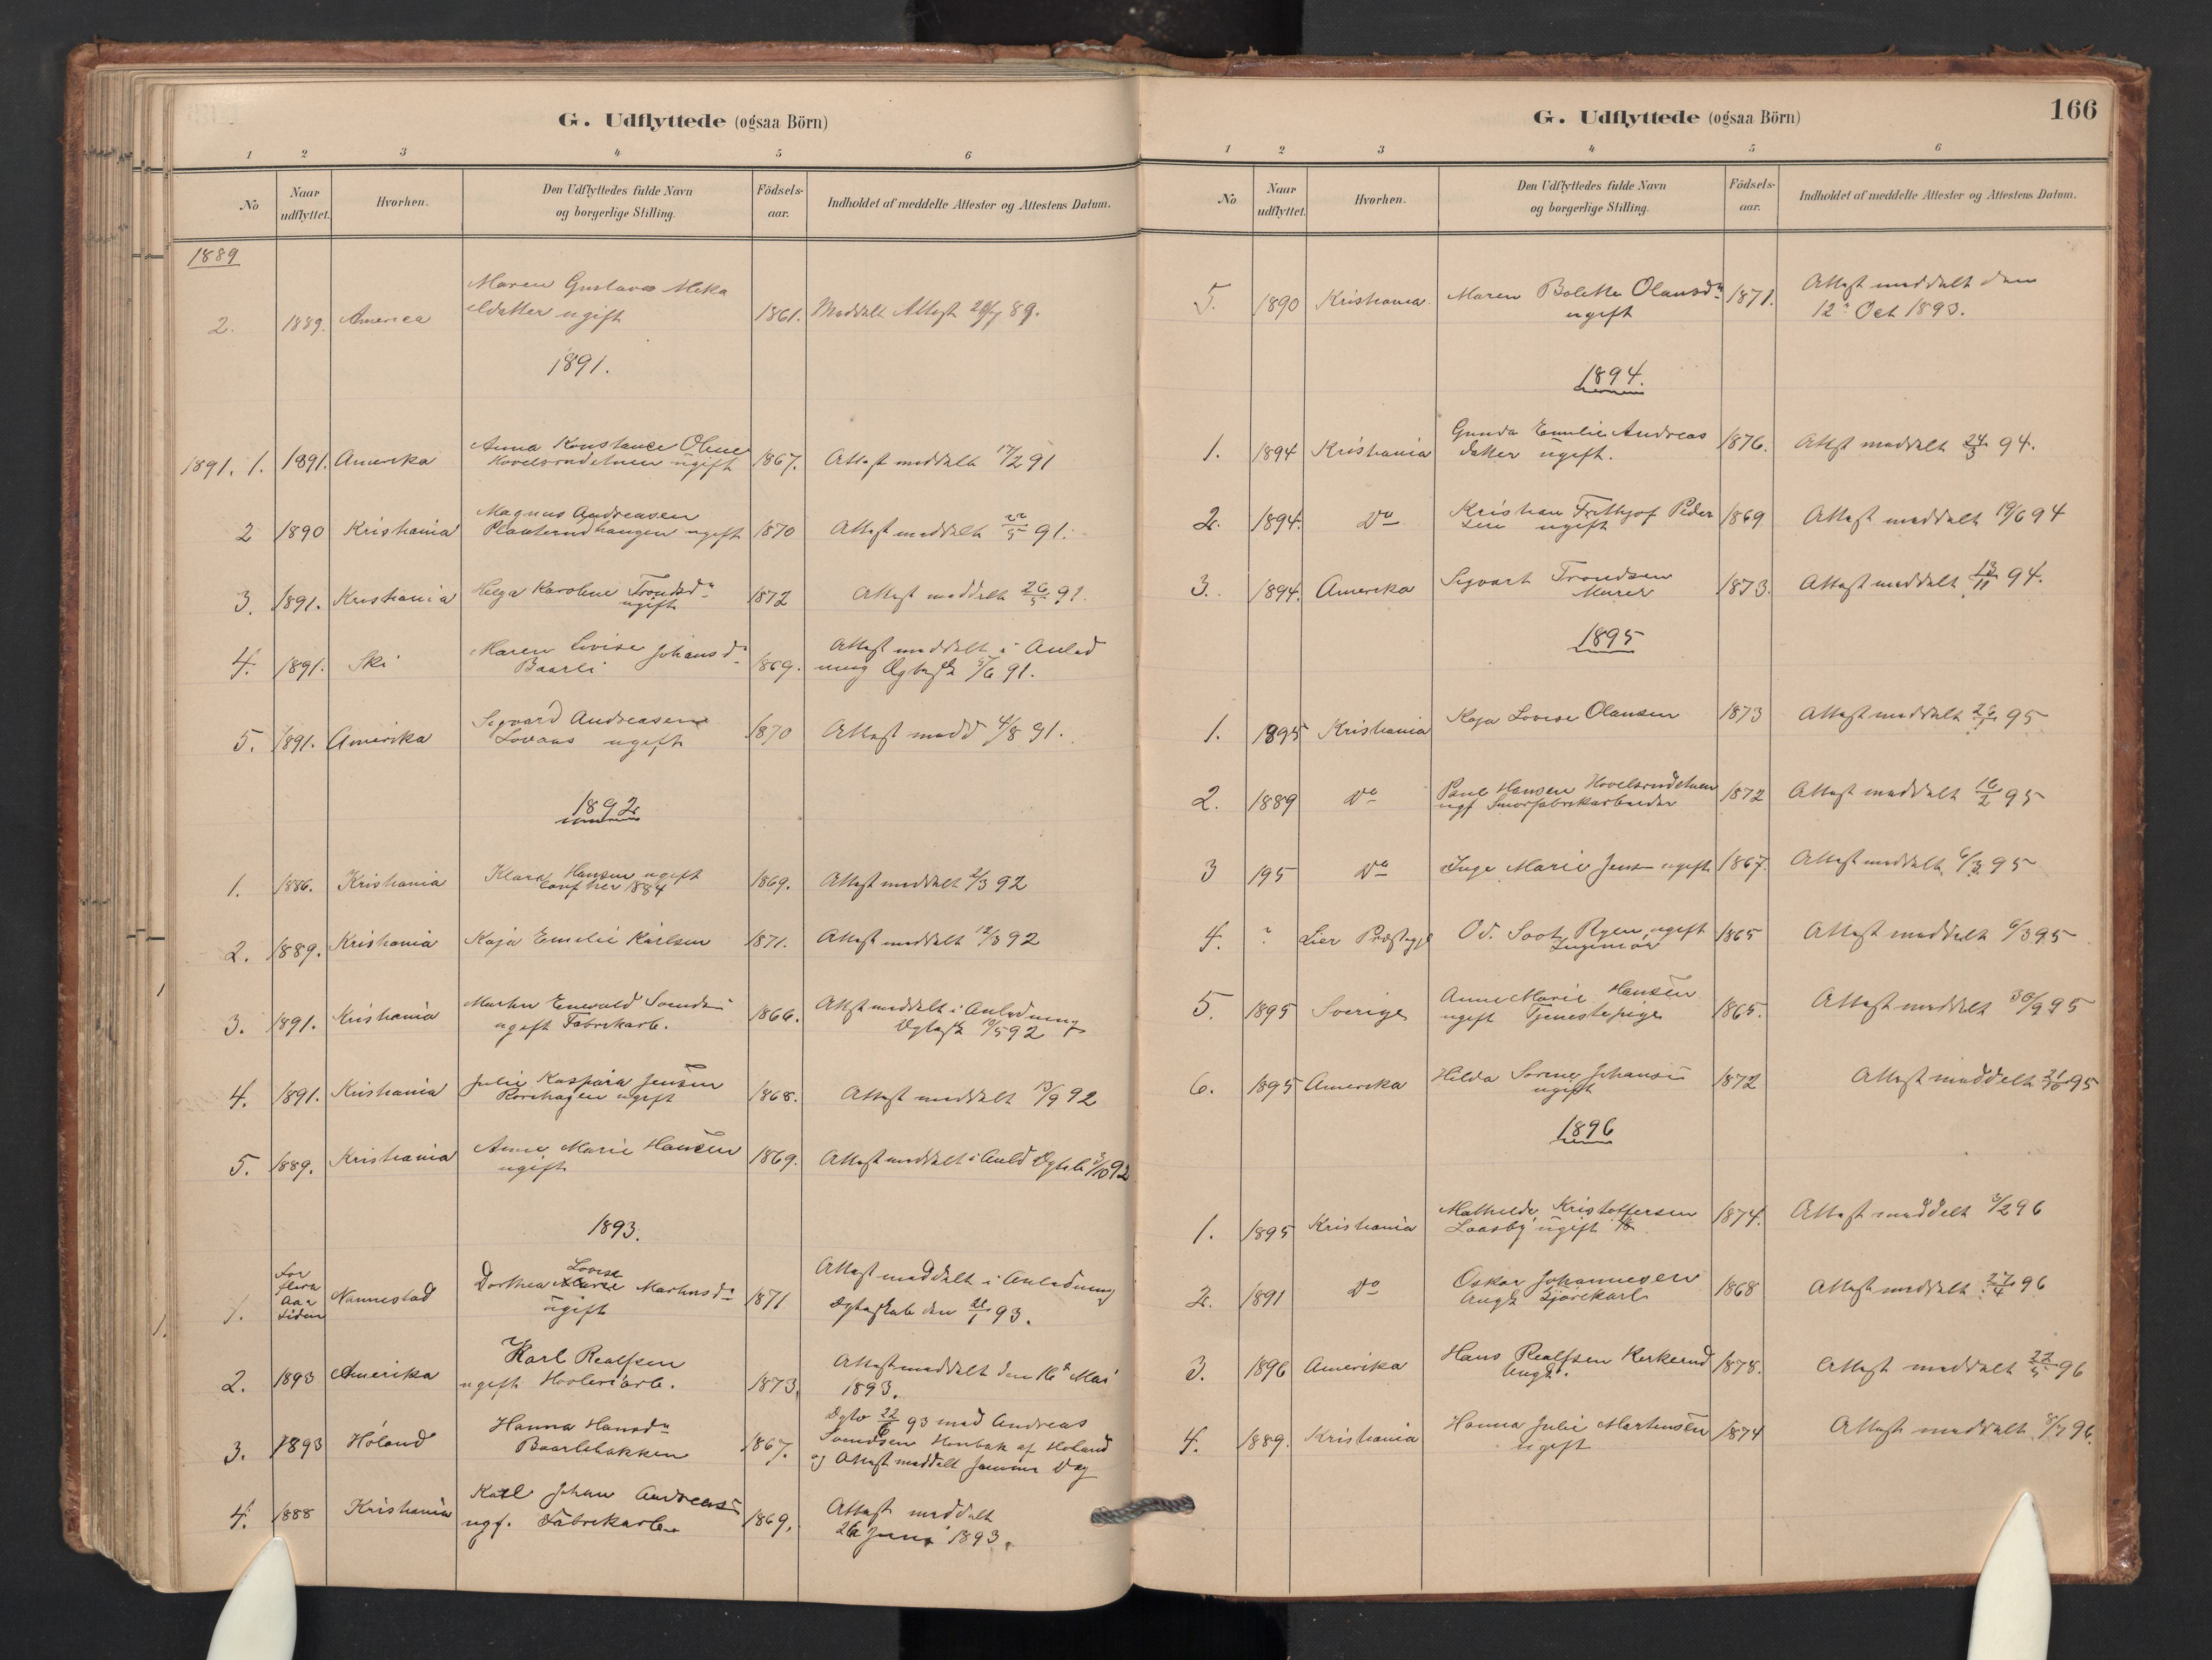 G. Udflyttede (ogsaa Börn)
1 2 3 4 5 6
No
Naar udflyttet.
Hvorhen.
Den Udflyttedes fulde Navn og borgerlige Stilling.
Födsels-aar.
Indholdet af meddelte Attester og Attestens Datum.
1889
Maren Gustava Mika
2. 1889. America eldatter ugift 1861. Meddelt Attest 89.
1891.
Anna Konstance Oline
1891. 1. 1891. Amerika ugift 1867. Attest meddelt 17/2 91
Magnus Andreasen
2 1890 Kristiania ugift 1870 Attest meddelt 91.
3. 1891. Kristiania Helga Karoline Trondsd. 1872 Attest meddelt 26/5 91.
ugift
Maren Lovise Johansd. Attest meddelt i Anled
4. 1891. Ski Baarli 1869. ning Ægtesk 5/6 91.
Sigvard Andreasen
5. 1891. Amerika Lovaas ugift 1870 Attest medd 4/8 91.
1892
1. 1886. Kristiania Klara Hansen ugift 1869. Attest meddelt 2/3 92
Conf her 1884
2. 1889. Kristiania Kaja Emilie Karlsen 1871. Attest meddelt 12/3 92
Martin Enevald Attest meddelt i Anledning
3. 1891. Kristiania ugift Fabrikarb. 1866. Ægtesk 92
Julie Kaspara Jensen
4. 1891. Kristiania ugift 1868. Attest meddelt 92
5. 1889. Kristiania Anne Marie Hansen 1869. Attest meddelt i Anled Ægtesk 3/10 92
ugift
1893.
For
flere
Aar
siden
1. Nannestad Dorthea Lovise Martinsd. 1871 Attest meddelt i Anledning
ugift Ægteskab den 93.
Karl Realfsen Attest meddelt den 16de Mai
2. 1893 Amerika ugift Høvleriarb. 1873. 1893.
Hanna Hansdr Ægtv 22/6 93 med Andreas
3. 1893 Høland Baarlibakken 1867. Honbak af Høland
og Attest meddelt samme Dag
Karl Johan Andreas Attest meddelt
4. 1888 Kristiania ugf. Fabrikarb. 1869. 26 Juni 1893.
G. Udflyttede (ogsaa Börn)
166
1 2 3 4 5 6
No
Naar udflyttet.
Hvorhen.
Den Udflyttedes fulde Navn og borgerlige Stilling.
Födsels-aar.
Indholdet af meddelte Attester og Attestens Datum.
Attest meddelt den
5. 1890 Kristiania. Maren Bolette Olausdr 1871.
ugift 12te Oct 1893.
1894.
Gunda Emilie Andreas
1. 1894 Kristiania datter ugift. 1876. Attest meddelt 24/3 94.
Kristian Frithjof Peder
2. 1894. Do sen ugift 1869 Attest meddelt 19/6 94
3. 1894. Amerika Sigvart Trondsen 1873. Attest meddelt 13/11 94.
Murer
1895
1. 1895 Kristiania Kaja Lovise Olausen 1873 Attest meddelt 26/1 95
Paul Hansen
2. 1889 Do ugf Smørfabrikarbeider 1872 Attest meddelt 16/2 95
3 195 Do Inga Marie Jens ugift 1867. Attest meddelt 6/3 95
4. ? Lier Præstegj Od. Soot Ryen, ugift 1865 Attest meddelt 6/3 95
Ingeniør
Anne Marie Hansen
5. 1895 Sverige ugift Tjenestepige 1865. Attest meddelt 30/9 95
6. 1895 Amerika Hilda Sørine Johans 1872 Attest meddelt 21/10 95
ugift
1896
Mathilde Kristoffersen
1. 1895 Kristiania Laasby ugift 1874. Attest meddelt 3/2 96
Oskar Johannesen
2. 1891 Do Ungk Kjørekarl 1868 Attest meddelt 27/4 96
Hans Realfsen Kirkerud
3. 1896 Amerika Ungk. 1878. Attest meddelt 22/5 96
Hanna Julie Martinsen
4. 1889. Kristiania ugift 1874 Attest meddelt 8/7 96.